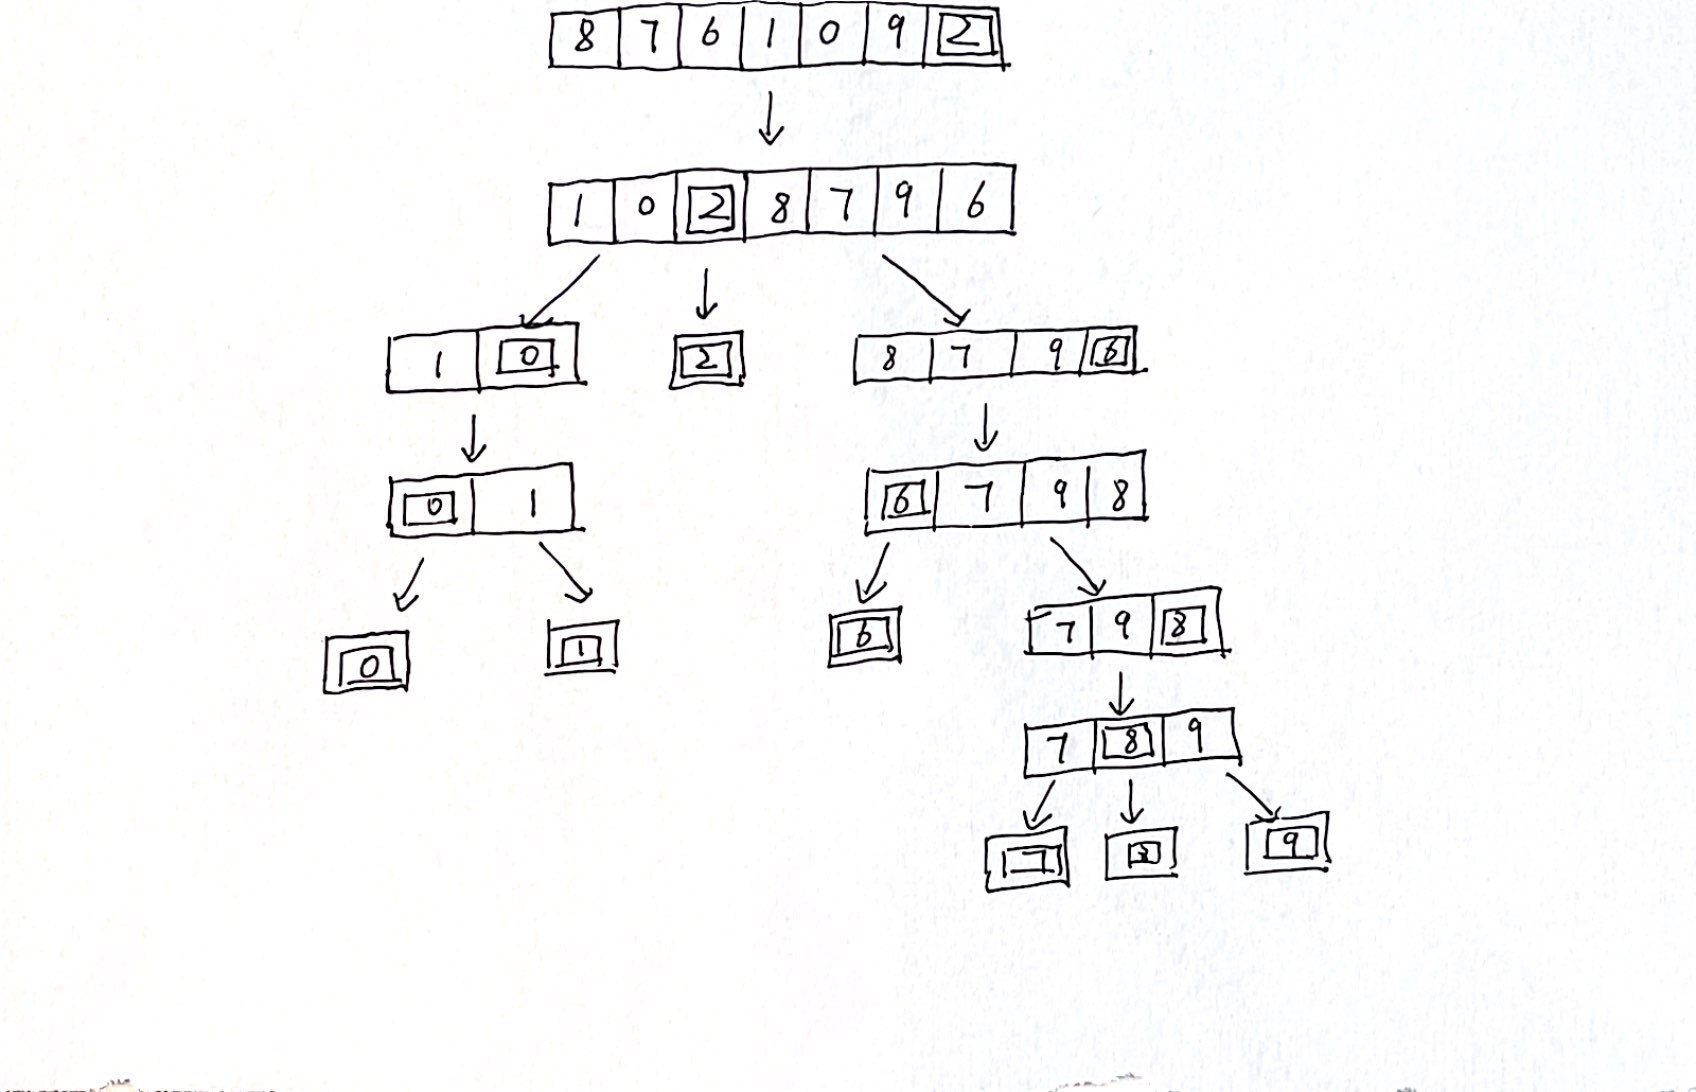 8 7 6 1 0 9 2
1 0 2 8 7 9 6
1 0 2 8 7 9 6
0 1 6 7 9 8
0 1 6 7 9 8
7 8 9
7 8 9